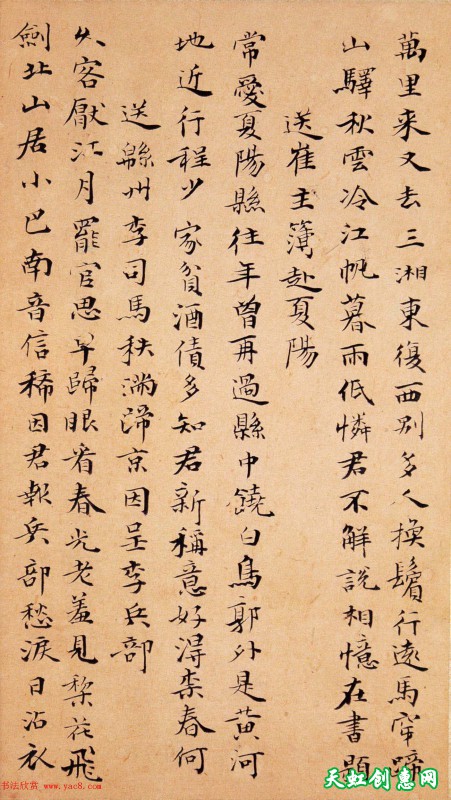 萬里来又去三湘東復西別多人換鬢行遠馬穿蹄
山驛秋雲冷江帆暮雨低憐君不解說相憶在書題
送崔主簿赴夏陽
常愛夏陽縣往年曾再過縣中饒白鳥郭外是黃河
地近行程少家貧酒債多知君新稱意好得柰春何
送緜州李司馬秩滿歸京因呈李兵部
久客厭江月罷官思早歸眼看春光老羞見梨花飛
劍北山居小巴南音信稀因君報兵部愁淚日沾衣
书法欣赏 www.yac8.com
天虹创惠网